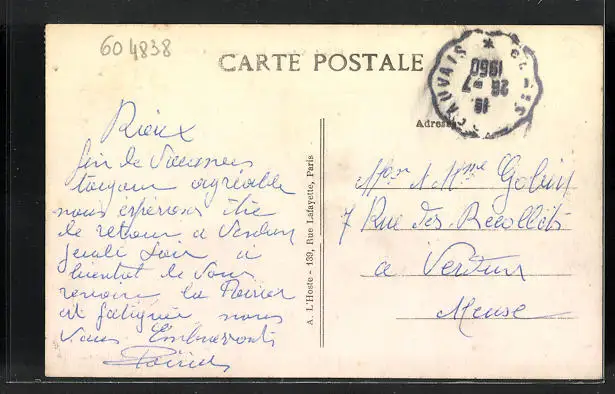 604838
CARTE POSTALE
BEAUVAIS
16
26 -7
1950
Adresse
Rieux
fin de Vacances
toujours agréable
nous espérons être
de retour a Verdun
jeudi soir a
bientot de vous
revoir la
est fatiguée nous
vous Embrassons
A. L'Hoste - 139, Rue Lafayette, Paris
Mon & Mme Gobin
7 Rue des Recollets
a Verdun
Meuse